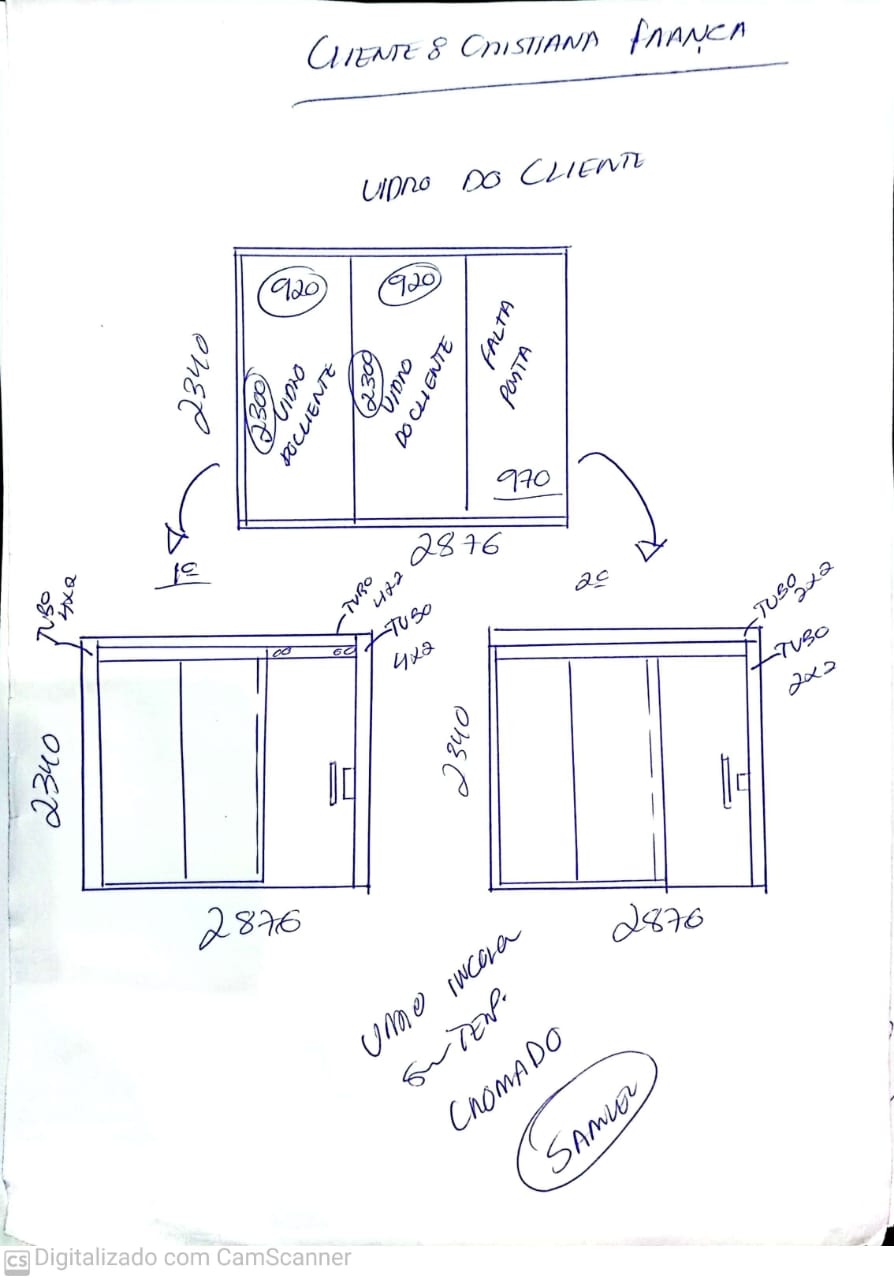 CLIENTE: CRISTIANA FRANÇA
VIDRO DO CLIENTE
920
920
FALTA
PORTA
2340
2300
VIDRO
DO CLIENTE
2300
VIDRO
DO CLIENTE
970
2876
1º
2º
TUBO
4x2
TUBO
4x2
TUBO
4x2
TUBO 2x2
TUBO
2x2
2340
2340
2876
2876
VIDRO INCOLOR
TEMP.
CROMADO
SAMUEL
CS Digitalizado com CamScanner